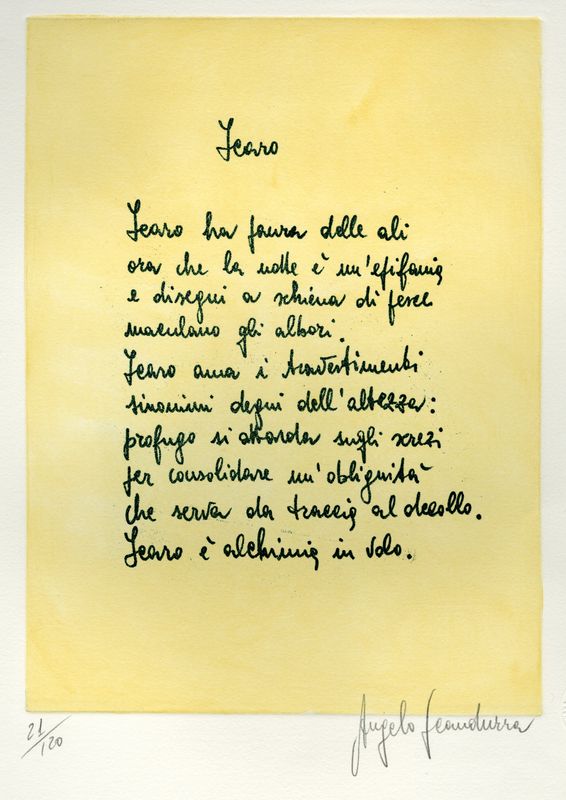 Icaro
Icaro ha paura delle ali
ora che la notte è un'epifania
e disegni a schiena di pesce
maculano gli albori.
Icaro ama i travestimenti
sinonimi degni dell'altezza:
profugo si attarda sugli screzi
per consolidare un'obliquità
che serva da traccia al decollo.
Icaro è alchimia in volo.
21/120
Angelo Scandurra